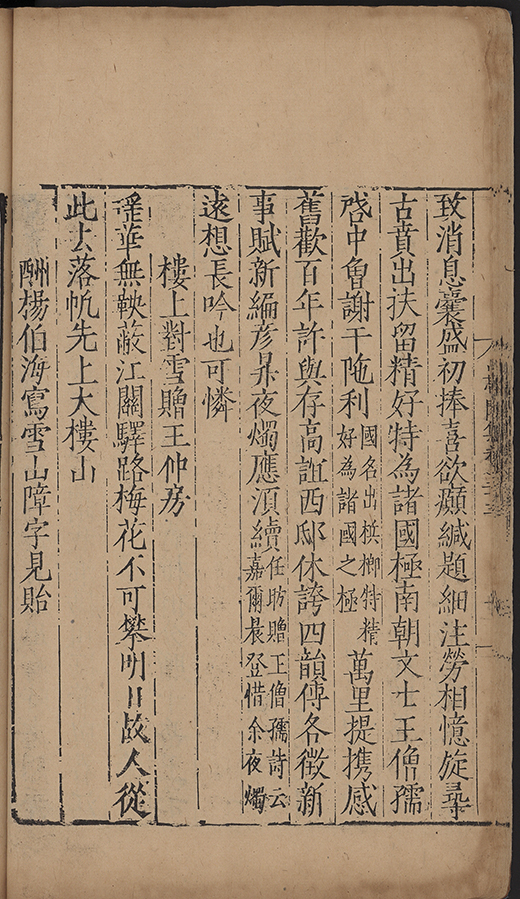 致消息囊盛初捧喜欲癲緘題細注勞相憶旋尋
古貢出扶留精好特為諸國極南朝文士王僧孺
啓中會謝干陁利國名出檳榔特精好為諸國之極萬里提携感
舊歡百年許與存高誼西邸休誇四韻傳各徵新
事賦新編彦昇夜燭應湏續任昉贈王僧孺詩云嘉爾晨登惜余夜燭
遠想長吟也可憐
樓上對雪贈王仲房
瑶華無映蔽江關驛路梅花不可攀明日故人從
此去落帆先上大樓山
酬楊伯海寫雪山障字見貽